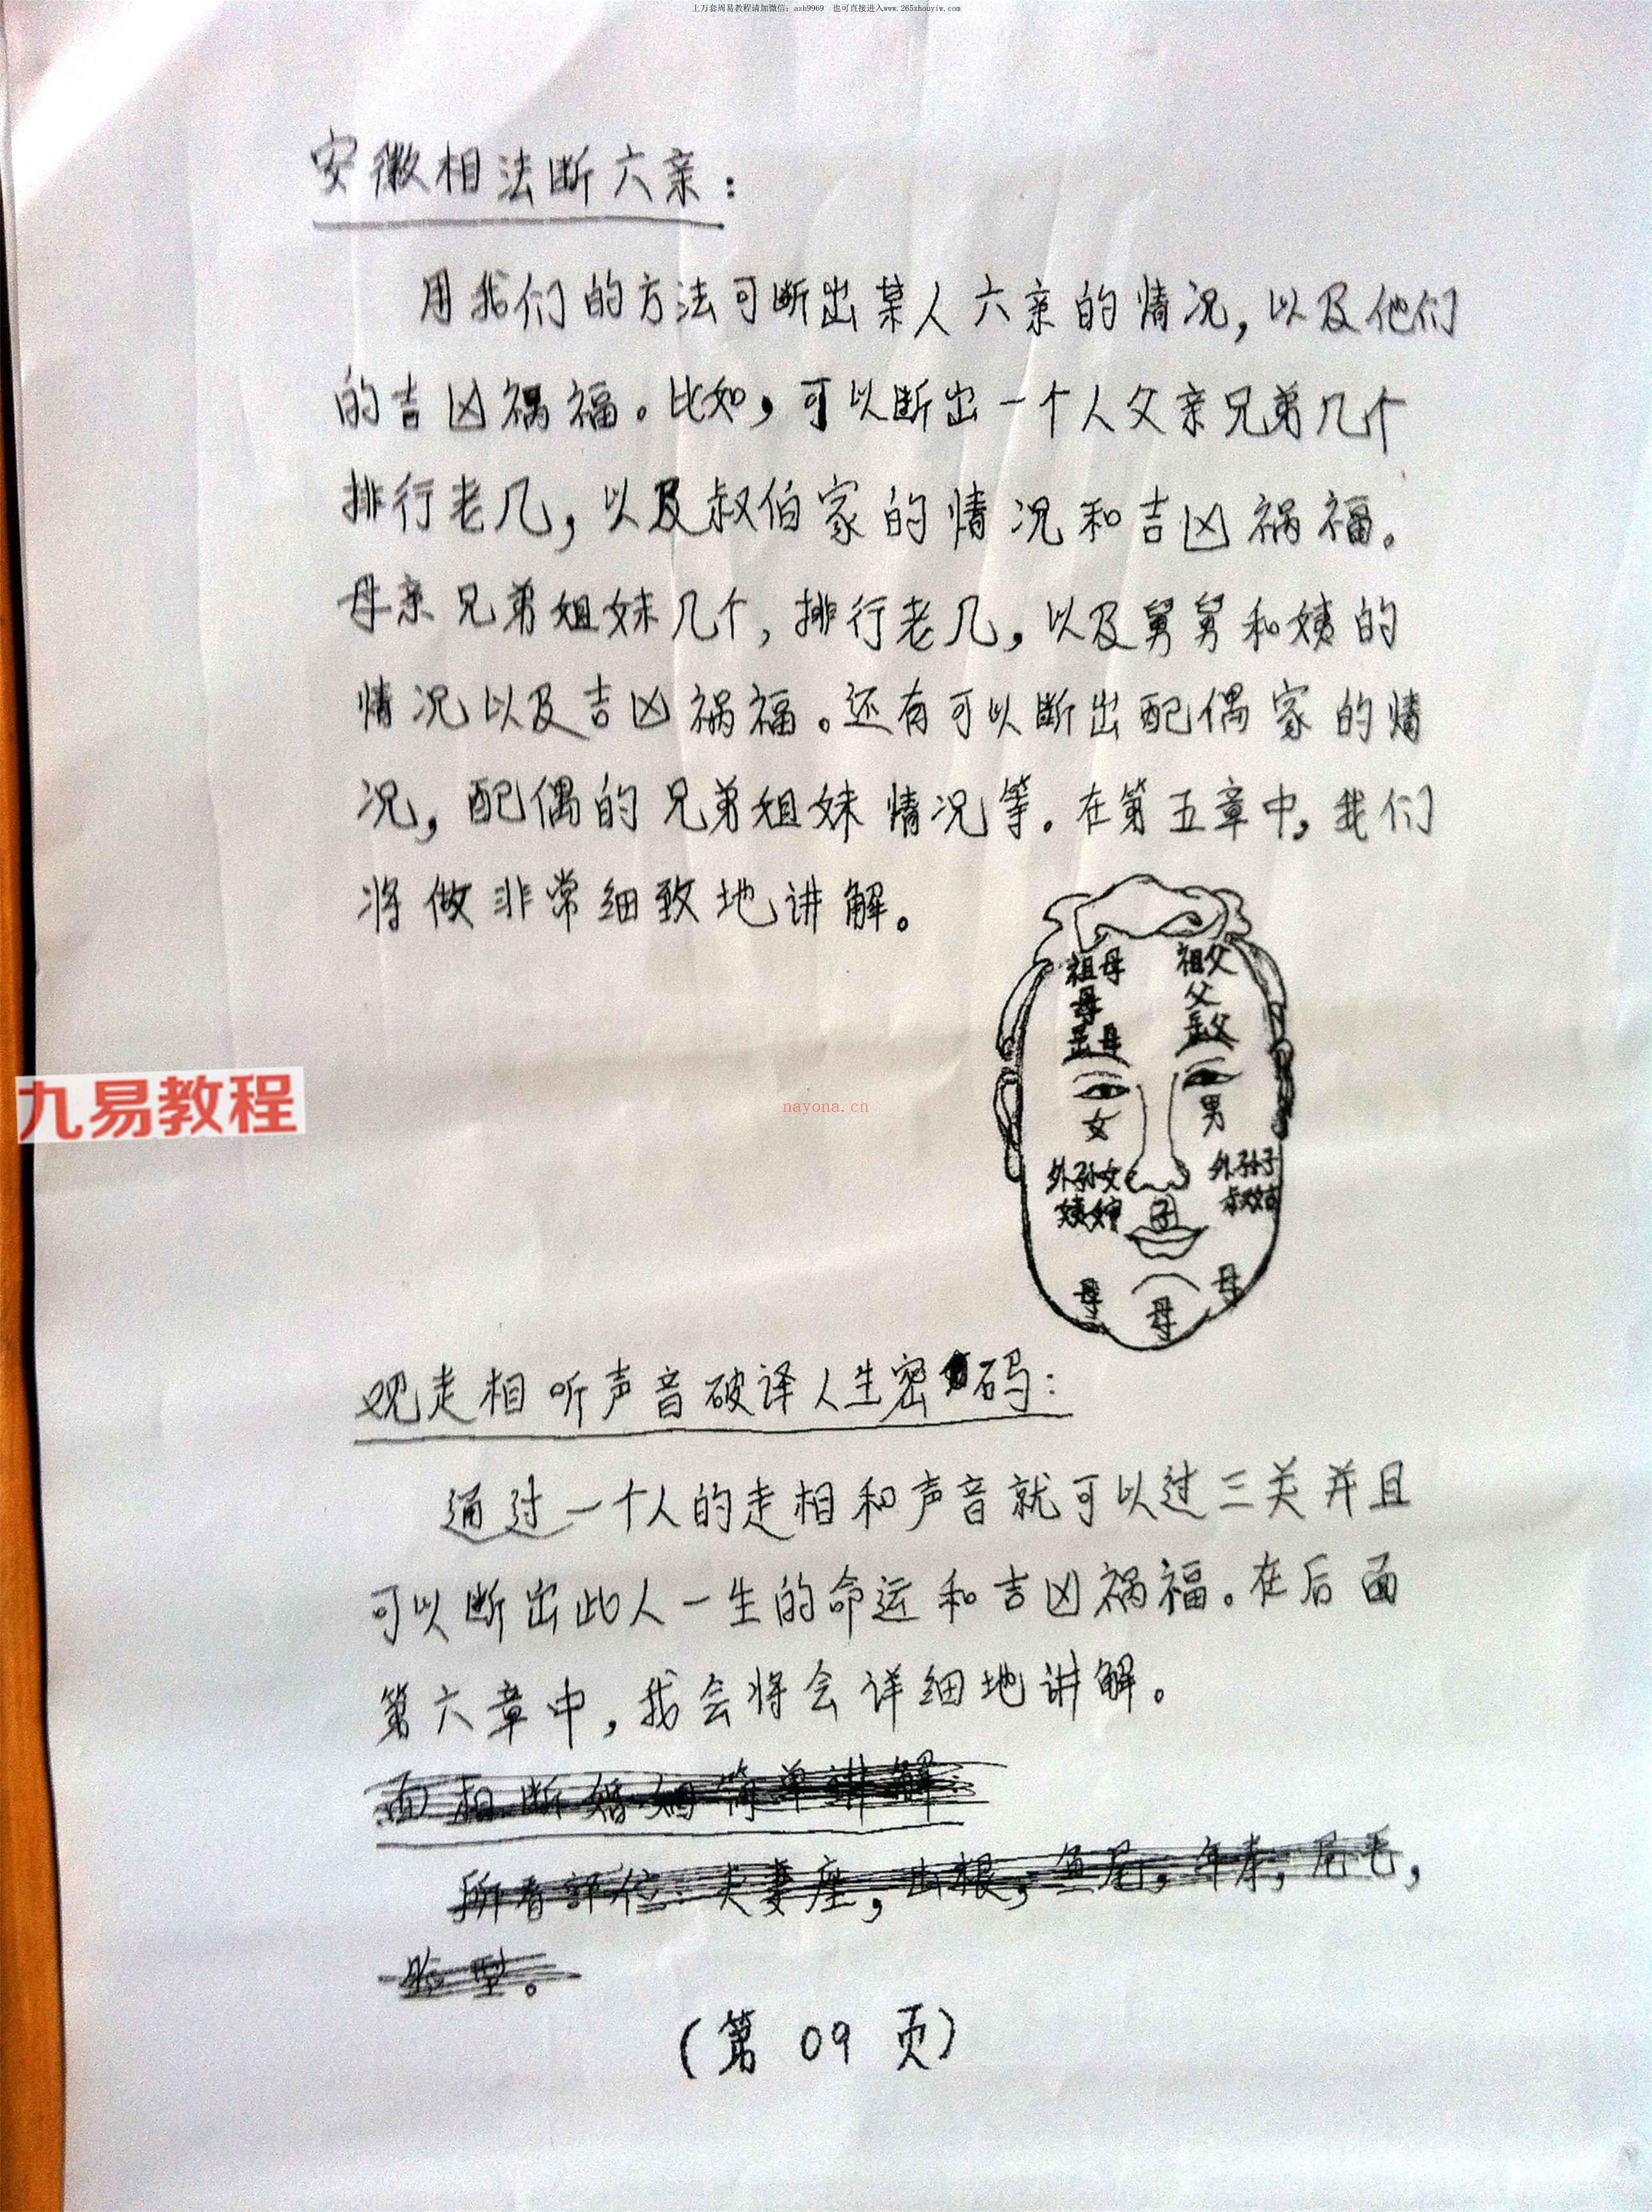 上万套周易教程请加微信：azh9969 也可直接进入www.265zhouyiw.com
安徽相法断六亲：
用我们的方法可断出某人六亲的情况，以及他们
的吉凶祸福。比如，可以断出一个人父亲兄弟几个
排行老几，以及叔伯家的情况和吉凶祸福。
母亲兄弟姐妹几个，排行老几，以及舅舅和姨的
情况以及吉凶祸福。还有可以断出配偶家的情
况，配偶的兄弟姐妹情况等。在第五章中，我们
将做非常细致地讲解。
祖母 祖父
母 父
岳母 岳父
女 男
外孙女 外孙子
姨婶 子 叔姑
母 母 母
九易教程
nayona.cn
观走相听声音破译人生密码：
通过一个人的走相和声音就可以过三关并且
可以断出此人一生的命运和吉凶祸福。在后面
第六章中，我会将会详细地讲解。
面相断婚姻简单讲解：
所看部位：夫妻座，山根，鱼尾，年寿，眉毛，
脸型。
（第09页）